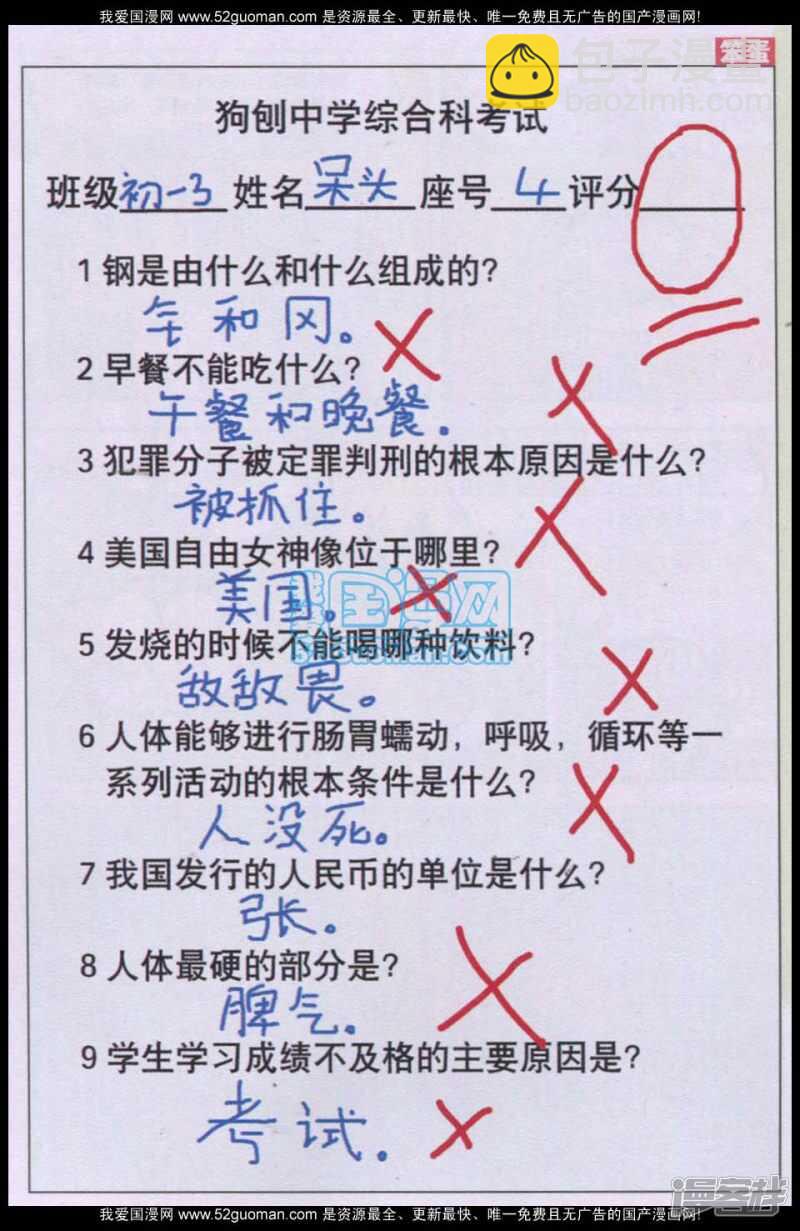 我爱国漫网 www.52guoman.com 是资源最全、更新最快、唯一免费且无广告的国产漫画网!
笨蛋
包子漫畫
baozimh.com
狗刨中学综合科考试
班级初一3 姓名呆头 座号4 评分0
1 钢是由什么和什么组成的?
钅和冈。
2 早餐不能吃什么?
午餐和晚餐。
3 犯罪分子被定罪判刑的根本原因是什么?
被抓住。
4 美国自由女神像位于哪里?
美国。
我爱国漫网
52guoman.com
5 发烧的时候不能喝哪种饮料?
敌敌畏。
6 人体能够进行肠胃蠕动,呼吸,循环等一
系列活动的根本条件是什么?
人没死。
7 我国发行的人民币的单位是什么?
张。
8 人体最硬的部分是?
脾气。
9 学生学习成绩不及格的主要原因是?
考试。
漫客栈
我爱国漫网 www.52guoman.com 是资源最全、更新最快、唯一免费且无广告的国产漫画网!